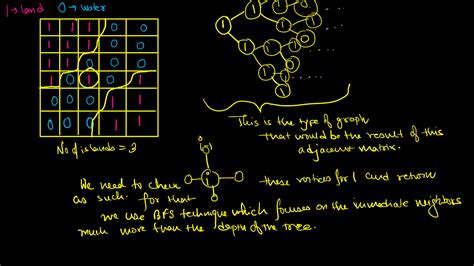 1 → land 0 → water
1 1 1 0 0
1 1 0 0 0
0 0 1 0 0
0 0 0 1 1
No of islands = 3
This is the type of graph
that would be the result of this
adjacent matrix.
We need to check these vertices for 1 and return
as such. for that
we use BFS technique which focuses on the immediate neighbors
much more than the depth of the tree.